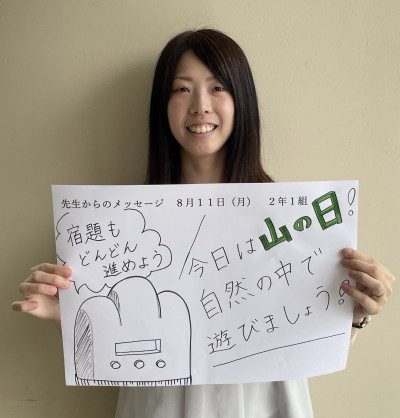 先生からのメッセージ　8月11日（月）　2年1組
宿題も
どんどん
進めよう
今日は山の日!
自然の中で
遊びましょう。